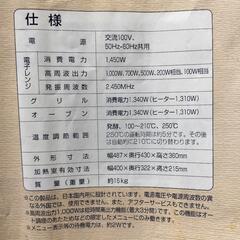 仕様
電源 交流100V、50Hz-60Hz共用
電子レンジ 消費電力 1,450W
高周波出力 1,000W,700W,500W,200W相当,100W相当
発振周波数 2,450MHz
グリル 消費電力1,340W(ヒーター1,310W)
オーブン 消費電力1,340W(ヒーター1,310W)
温度調節範囲 発酵、100~210℃、250℃
250℃の運転時間は約5分です。その後は
自動的に210℃に切り替わります。
外形寸法 幅487×奥行430×高さ360mm
加熱室有効寸法 幅400×奥行322×高さ215mm
質量(重量) 約15kg
この製品は、日本国内用に設計されています。電源電圧や電源周波数の異
なる外国では、使用できません。また、アフターサービスもできません。
高周波出力1,000Wは短時間高出力機能(最大3分間)です。この機能はオー